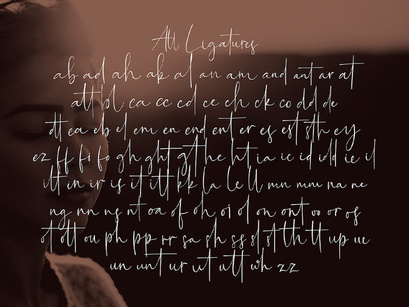 All Ligatures
ab ad ah ak al an am and ant ar at
att bl ca cc cd ce ch ck co dd de
dt ea eb el em en end ent er es est eth ey
ez ff fi fo gh ght gt he ht ia ic id idd ie il
in ir is it itt kk la le ll mn mm na ne
ng nn ns nt oa of oh oi ol on ont oo or os
ot ott ou ph pp rr sa sh ss st th tt up ue
un unt ur ut utt wh zz